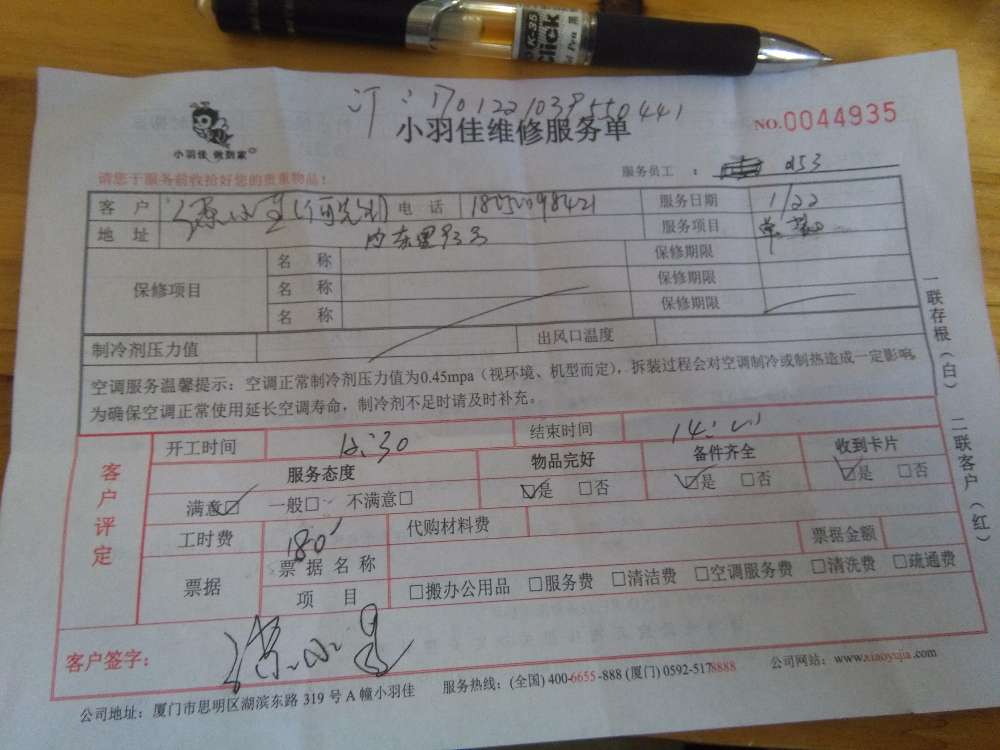 K-35
Click
订:1701221039550441
小羽佳 做到家
小羽佳维修服务单
NO.0044935
请您于服务前收拾好您的贵重物品!
服务员工 : 053
客 户 电 话 18050098421 服务日期 1/22
地 址 内东里93号 服务项目
保修项目 名 称 保修期限
名 称 保修期限
名 称 保修期限
制冷剂压力值 出风口温度
空调服务温馨提示:空调正常制冷剂压力值为0.45mpa(视环境、机型而定),拆装过程会对空调制冷或制热造成一定影响,
为确保空调正常使用延长空调寿命,制冷剂不足时请及时补充。
一联存根(白) 二联客户(红)
客户评定
开工时间 结束时间
服务态度 物品完好 备件齐全 收到卡片
满意☑ 一般□ 不满意□ ☑是 □否 ☑是 □否 ☑是 □否
工时费 180 代购材料费
票据 票据名称 票据金额
项 目 □搬办公用品 □服务费 □清洁费 □空调服务费 □清洗费 □疏通费
客户签字:
公司地址:厦门市思明区湖滨东路 319 号 A 幢小羽佳 服务热线:(全国) 400-6655-888 (厦门) 0592-5178888 公司网站:www.xiaoyujia.com